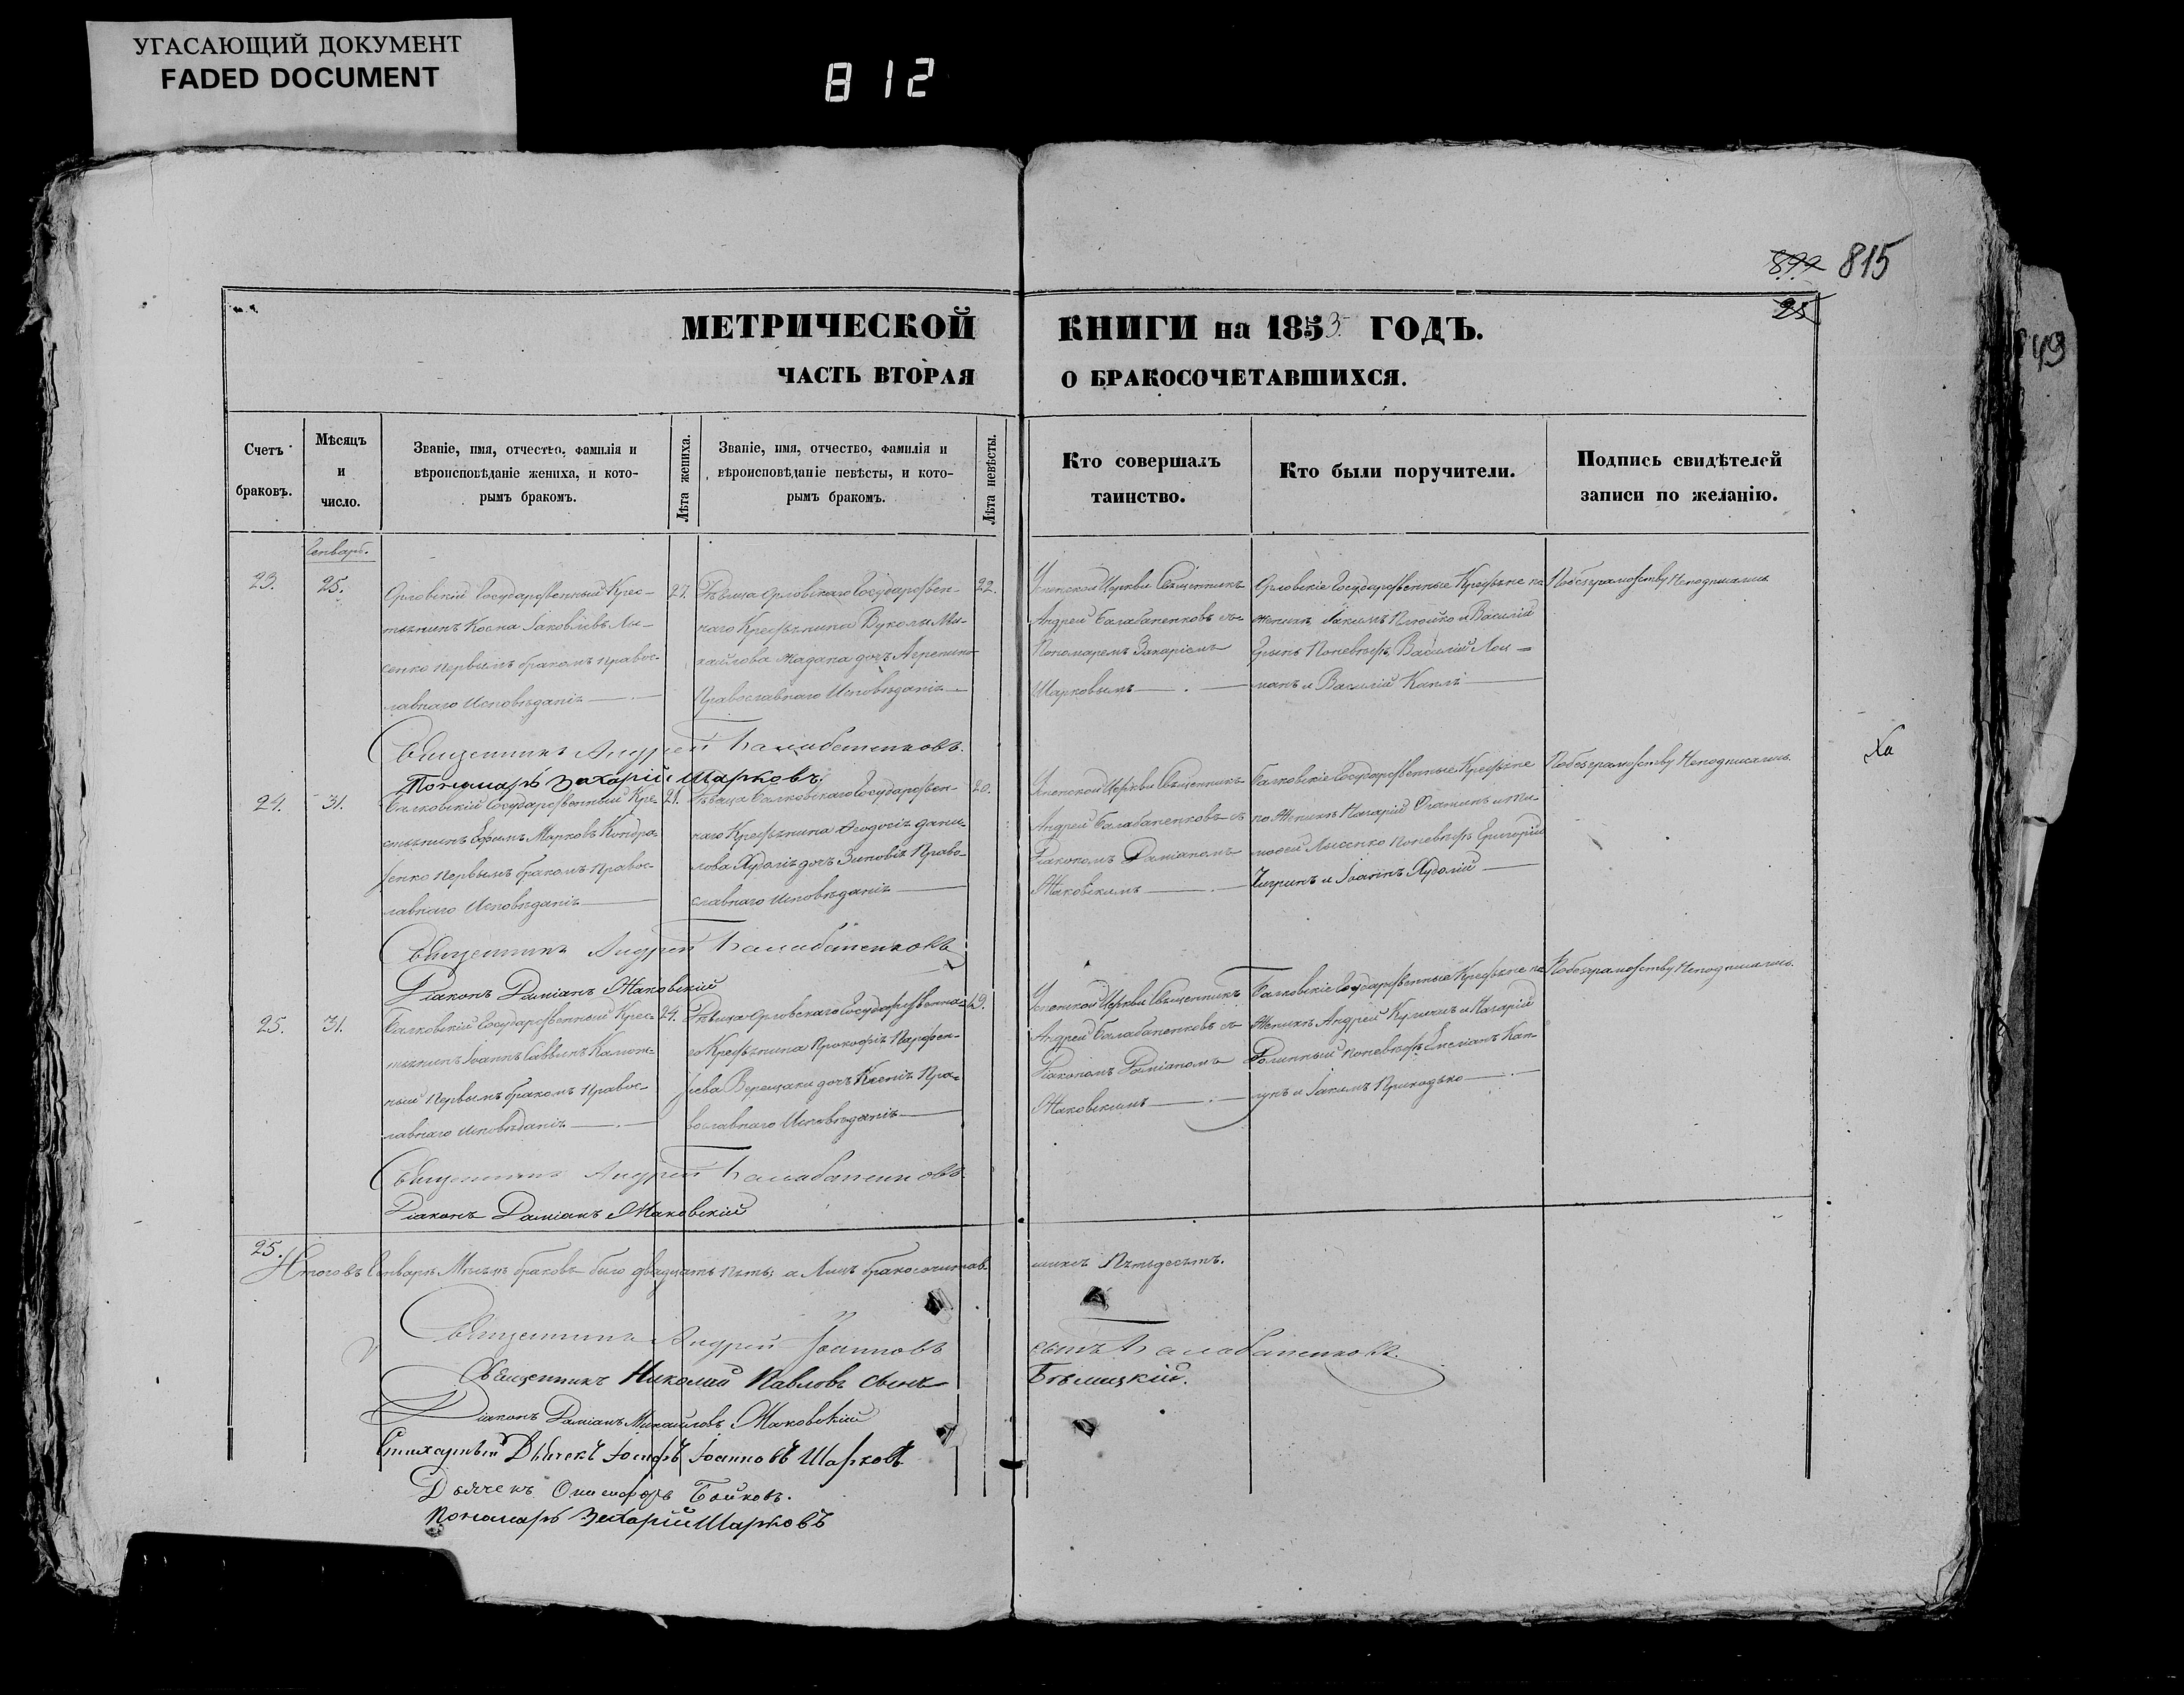 УГАСАЮЩИЙ ДОКУМЕНТ
FADED DOCUMENT
812
815
25
49
МЕТРИЧЕСКОЙ КНИГИ на 1853 ГОДЪ.
ЧАСТЬ ВТОРАЯ О БРАКОСОЧЕТАВШИХСЯ.
Счетъ браковъ.
Мѣсяцъ и число.
Званіе, имя, отчество, фамилія и
вѣроисповѣданіе жениха, и кото-
рымъ бракомъ.
Лѣта жениха.
Званіе, имя, отчество, фамилія и
вѣроисповѣданіе невѣсты, и кото-
рымъ бракомъ.
Лѣта невѣсты.
Кто совершалъ
таинство.
Кто были поручители.
Подпись свидѣтелей
записи по желанію.
23.
25.
Орловскій Государственный Крес-
тьянинъ Косма Іаковлевъ Лы-
сенко первымъ бракомъ правос-
лавнаго Исповѣданія
27.
Дѣвица Орловскаго Государствен-
наго Крестьянина Вукола Ми-
хайлова Жадана дочь
Православнаго Исповѣданія
22.
Успенской Церкви Священникъ
Андрей Балабаненковъ съ
Пономаремъ Захаріемъ
Шарковымъ
Орловскіе Государственные Крестьяне по
женихѣ Іакимъ и Василій
по невѣстѣ Василій Лоц-
манъ и Василій
По безграмотству Неподписались
Священникъ Андрей Балабаненковъ.
Пономарь Захарій Шарковъ.
24.
31.
Балковскій Государственный Кре-
стьянинъ Ефимъ Марковъ Кондра-
тенко первымъ бракомъ правос-
лавнаго Исповѣданія
21.
Дѣвица Балковскаго Государствен-
наго Крестьянина Ѳеодосія Дани-
лова Худолія дочь Зиновія Право-
славнаго Исповѣданія
20.
Успенской Церкви Священникъ
Андрей Балабаненковъ съ
Діакономъ Даміаномъ
Маковскимъ
Балковскіе Государственные Крестьяне
по Женихѣ Назарій и Ти-
мофей Лысенко по невѣстѣ Григорій
Чигринъ и Іоаннъ Худолій
По безграмотству Неподписались.
Ха
Священникъ Андрей Балабаненковъ
Діаконъ Даміанъ Маковскій
25.
31.
Балковскій Государственный Крес-
тьянинъ Іоаннъ Саввинъ
первымъ бракомъ Правос-
лавнаго Исповѣданія
24.
Дѣвица Орловскаго Государственна-
го Крестьянина Прокофія Парфен-
тіева Верещаки дочь Ксенія Пра-
вославнаго Исповѣданія
19.
Успенской Церкви Священникъ
Андрей Балабаненковъ съ
Діакономъ Даміаномъ
Маковскимъ
Балковскіе Государственные Крестьяне по
Женихѣ Андрей и Назарій
по невѣстѣ Емеліанъ Кап-
лунъ и Іакимъ Приходько
По безграмотству Неподписались.
Священникъ Андрей Балабаненковъ
Діаконъ Даміанъ Маковскій
25.
Итого въ Генварѣ Мѣсяцѣ браковъ было двадцать пять; а Лицъ бракосочитав-
шихся Пятьдесятъ.
Священникъ Андрей Іоанновъ сынъ Балабаненковъ.
Священникъ Николай Павловъ сынъ Бѣлицкій.
Діаконъ Даміанъ Михаиловъ Маковскій
Стихарный Дьячекъ Іосифъ Іоанновъ Шарковъ
Дьячекъ Онисифоръ Бойковъ.
Пономарь Захарій Шарковъ